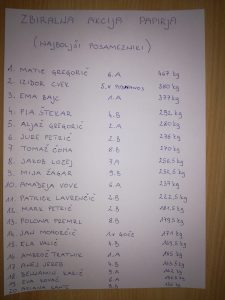 ZBIRALNA AKCIJA PAPIRJA
(NAJBOLJŠI POSAMEZNIKI)
1. MATIC GREGORIČ 6.A 467 kg
2. IZIDOR CVEK 380 kg
3. EMA BAJC 1.A 377 kg
4. PIA ŠTEKAR 4.B 292 kg
5. ALJAŽ GREGORIČ 2.A 280 kg
6. JURE PETRIČ 2.B 276 kg
7. TOMAŽ ČOHA 8.B 270 kg
8. JAKOB LOZEJ 7.A 256,5 kg
9. MIJA ŽAGAR 9.B 252,5 kg
10. AMADEJA VOVK 6.A 237 kg
11. PATRICK LAVRENČIČ 2.B
12. MARK PETRIČ 2.B
13. POLONA PREMRL 8.B 179,5 kg
14. JAN 1.v GOČE
15. ELA VALIČ 4.B
16. AMBROŽ TRATNIK 1.A
17. ANEJ JEREB 4.B
18. BENJAMIN 9.A
19. EVA 6.A
20.